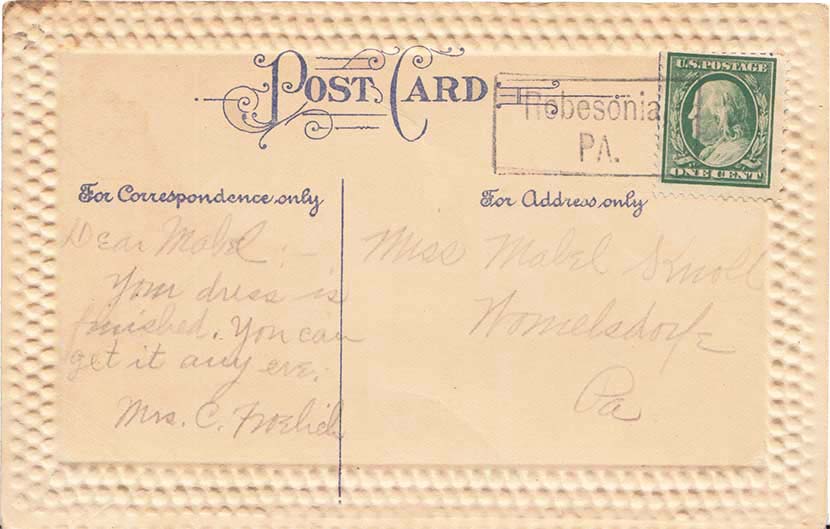 POST CARD
Robesonia
PA.
U.S. POSTAGE
ONE CENT
For Correspondence only
For Address only
Dear Mabel :-
Your dress is
finished. You can
get it any eve.
Mrs. C. Froelich
Miss Mabel Knoll
Womelsdorf
Pa